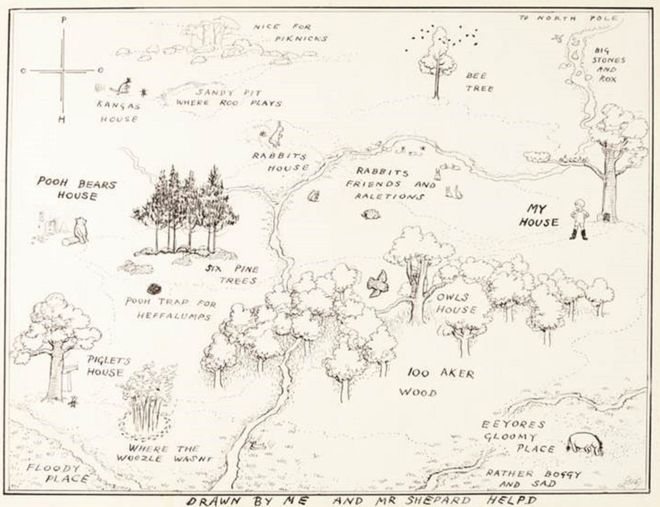 NICE FOR
PIKNICKS
TO NORTH POLE
BIG
STONES
AND
ROX
P
O
O
H
BEE
TREE
KANGAS
HOUSE
SANDY PIT
WHERE ROO PLAYS
RABBITS
HOUSE
RABBITS
FRIENDS AND
RALETIONS
POOH BEARS
HOUSE
MY
HOUSE
SIX PINE
TREES
POOH TRAP FOR
HEFFALUMPS
OWLS
HOUSE
PIGLETS
HOUSE
100 AKER
WOOD
WHERE THE
WOOZLE WASNT
EEYORES
GLOOMY
PLACE
FLOODY
PLACE
RATHER BOGGY
AND SAD
DRAWN BY ME AND MR SHEPARD HELPD